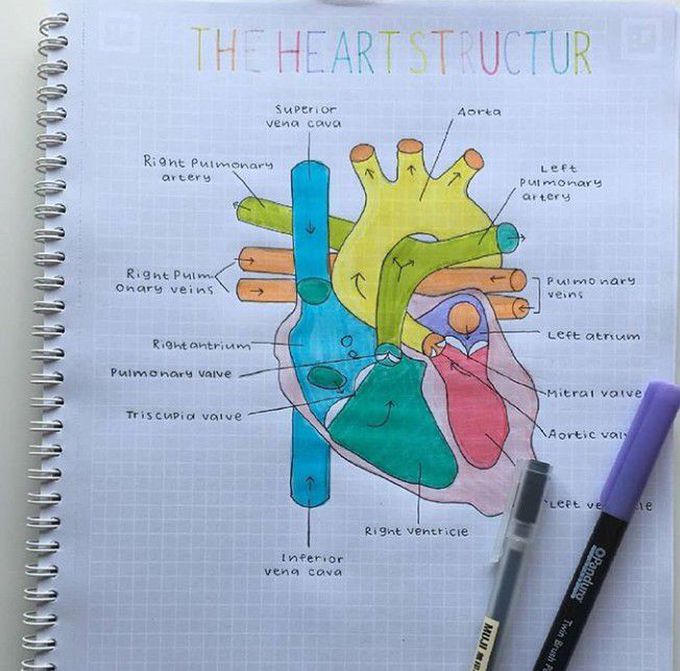 THE HEART STRUCTUR
Superior
vena cava
Aorta
Right Pulmonary
artery
Left
Pulmonary
artery
Right Pulm
onary veins
Pulmonary
veins
Right antrium
Left atrium
Pulmonary valve
Mitral valve
Triscupid valve
Aortic val
Left ve le
Right ventricle
Inferior
vena cava
MUJI
Twin Brush